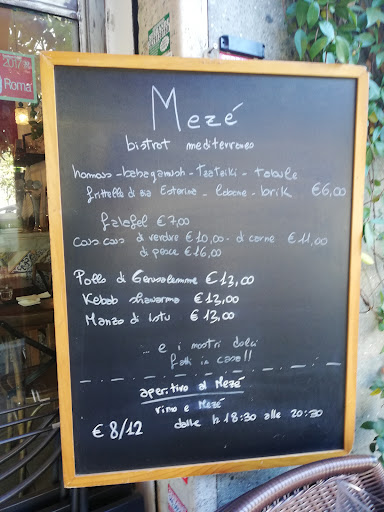 2017
Roma
Mezé
bistrot mediterraneo
homous - babaganush - tzatziki - tabule
frittelle di zia Esterina - labane - brik €6,00
falafel €7,00
cous cous di verdure €10,00 - di carne €11,00
di pesce €16,00
Pollo di Gerusalemme €13,00
Kebab shawarma €13,00
Manzo di Istu €13,00
... e i nostri dolci
fatti in casa!!
aperitivo al Mezé
vino e Mezé
€ 8/12 dalle h 18:30 alle 20:30